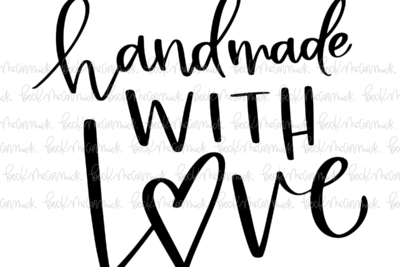 handmade
WITH
Love